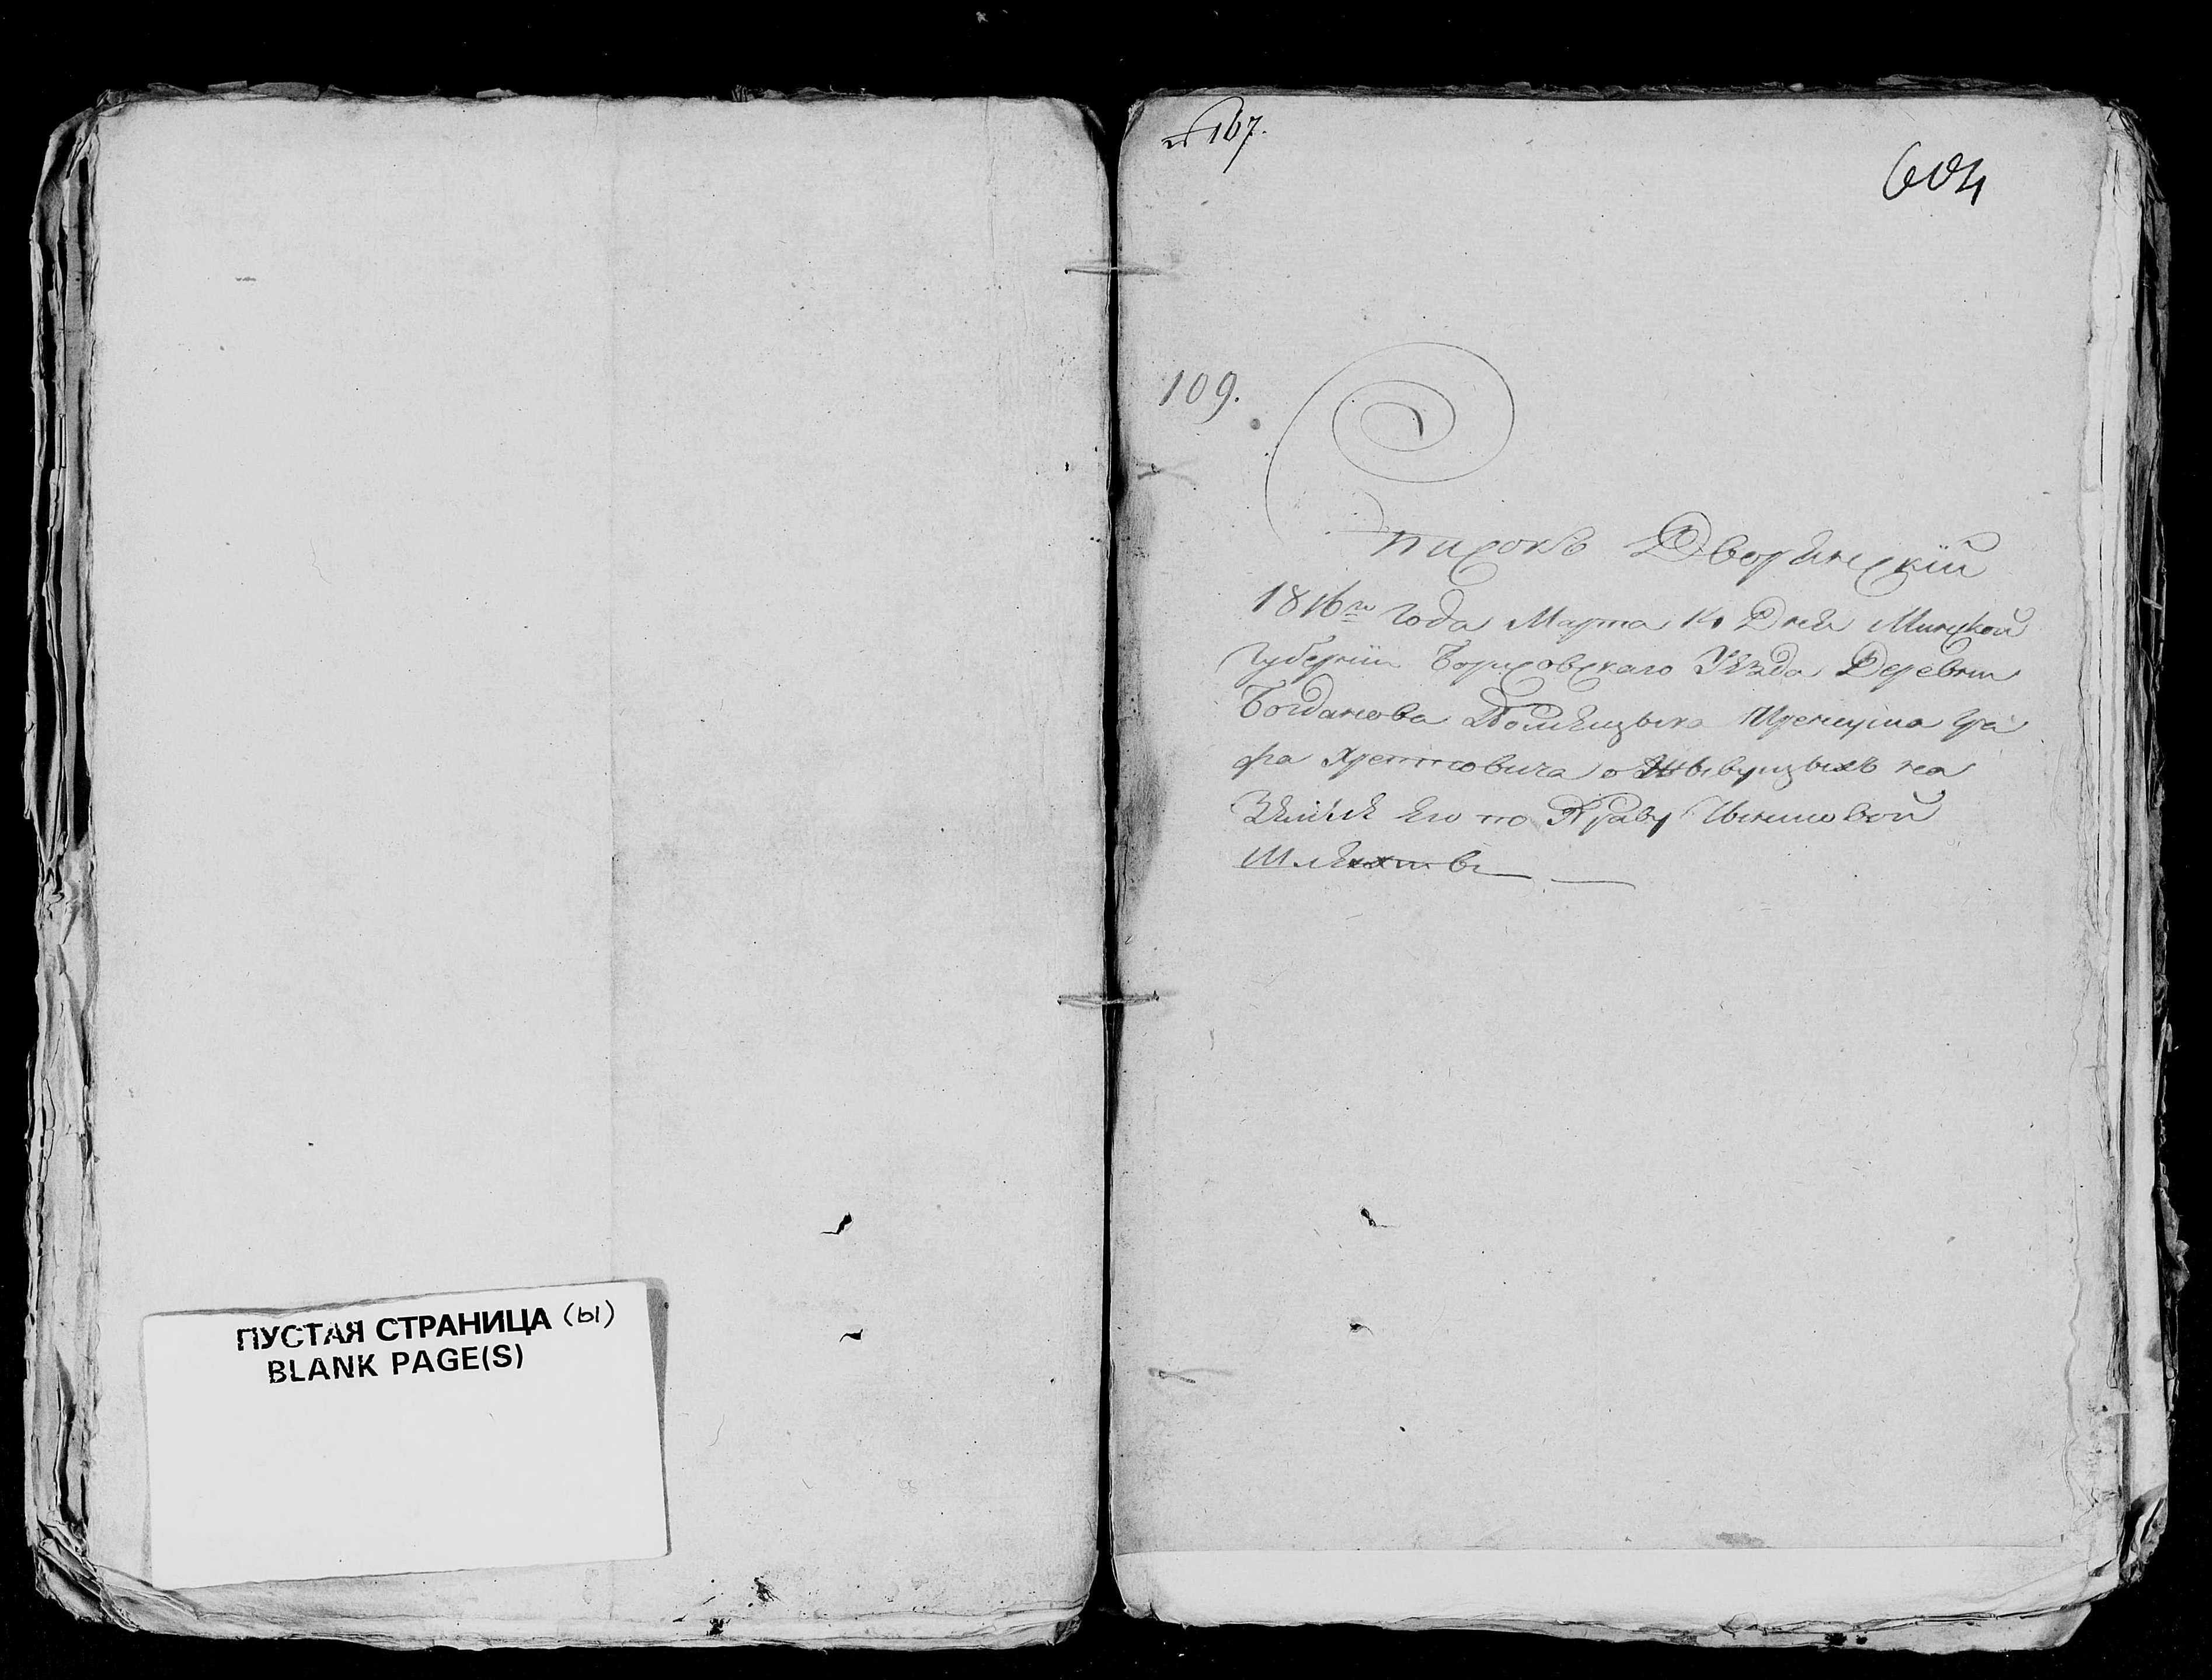 ПУСТАЯ СТРАНИЦА (ы)
BLANK PAGE(S)
№ 167.
604
109.
Списокъ Дворянскїй
1816го года Марта Дня Минской
Губернїи Борисовскаго Уѣзда Деревни
Богданова Помѣщыка Иренеуша Гра
фа Хрептовича о Жывущыхъ на
Землѣ Его по Праву Чыншовой
Шляхтѣ